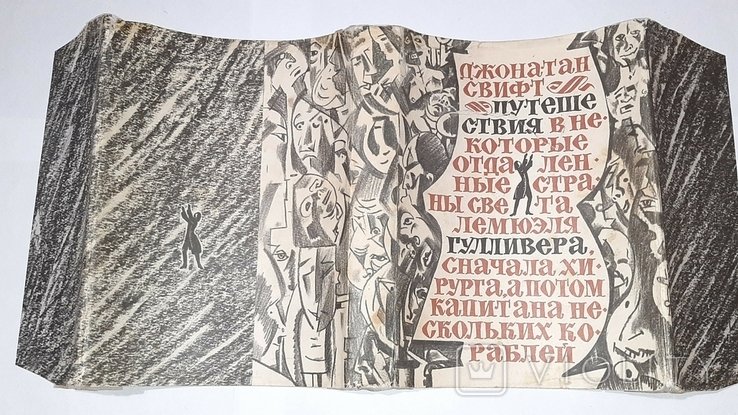 ДЖОНАТАН
СВИФТ
ПУТЕШЕ
СТВИЯ В НЕ-
КОТОРЫЕ
ОТДАЛЕН-
НЫЕ СТРА
НЫ СВЕТА
ЛЕМЮЭЛЯ
ГУЛЛИВЕРА,
СНАЧАЛА ХИ-
РУРГА, А ПОТОМ
КАПИТАНА НЕ-
СКОЛЬКИХ КО-
РАБЛЕЙ